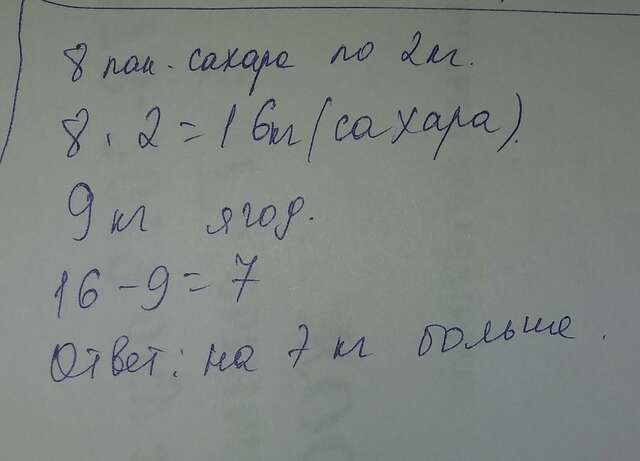 8 пак. сахара по 2кг.
8 · 2 = 16кг (сахара).
9 кг ягод.
16 - 9 = 7
Ответ: на 7 кг больше.